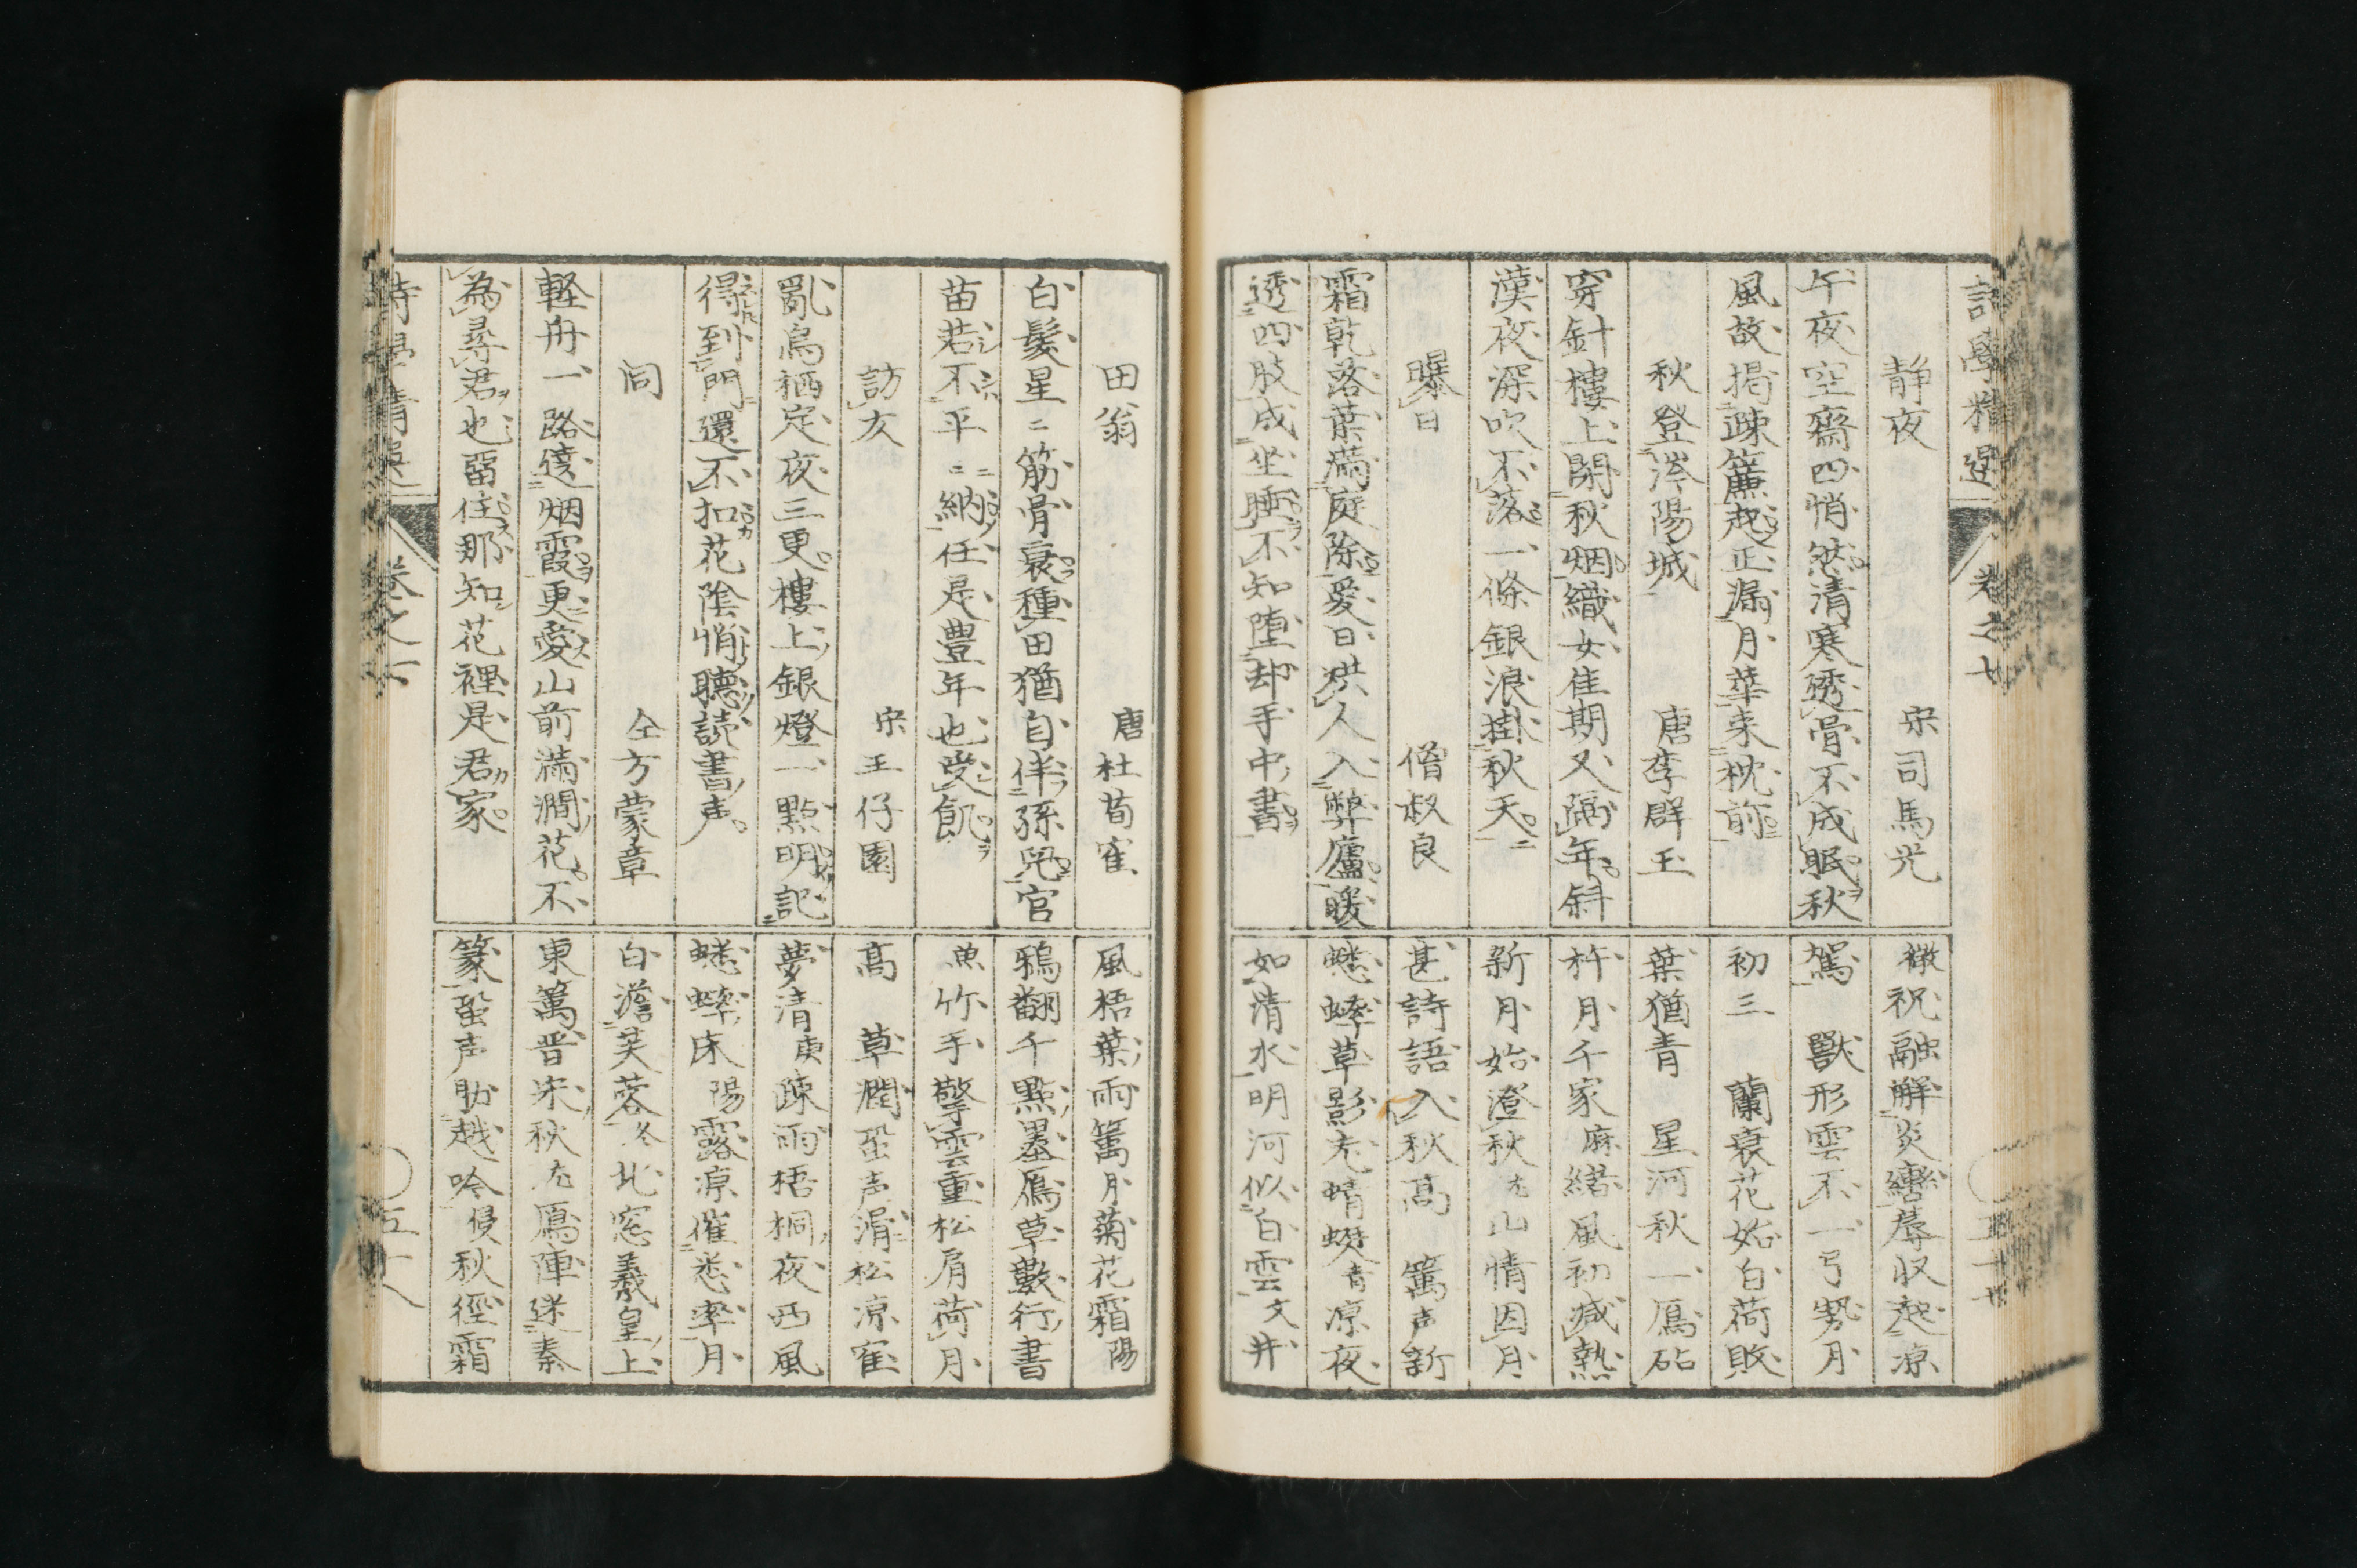 静夜　宋司馬光
午夜空齋四悄然清寒透骨不成眠秋
風故掲疎簾起正漏月華来枕前
秋登涔陽城　唐李群玉
穿針樓上閉秋烟織女佳期又隔年斜
漢夜深吹不落一條銀浪掛秋天
曝日　僧叔良
霜乾落葉満庭除愛日烘人入弊廬暖
透四肢成坐睡不知堕却手中書
徴祝融解炎轡蓐収起凉
駕　獣形雲不一弓勢月
初三　蘭衰花始白荷敗
葉猶青　星河秋一鴈砧
杵月千家麻緒風初減熱
新月始澄秋尤山情因月
甚詩語入秋高　篱声新
蟋蟀草影老蜻蜓青凉夜
如清水明河似白雲文井
田翁　唐杜荀隺
白髪星二筋骨衰種田猶自伴孫兒官
苗若不平二納任是豊年也受飢
訪友　宋王仔園
亂烏栖定夜三更樓上銀燈一點明記
得到門還不扣花陰悄聴読書声
同　仝方蒙章
軽舟一路遶烟霞更愛山前満澗花不
為尋君也留住那知花裡是君家
風梧葉雨篱月菊花霜陽
鴉翻千點墨鴈草數行書
魚竹手擎雲重松肩荷月
高　草潤蛩声滑松凉隺
夢清庚疎雨梧桐夜西風
蟋蟀床陽露凉催悉率月
白澹芙蓉冬北窓羲皇上
東篱晋宋秋尤鴈陣迷秦
篆蛩声助越吟侵秋徑霜